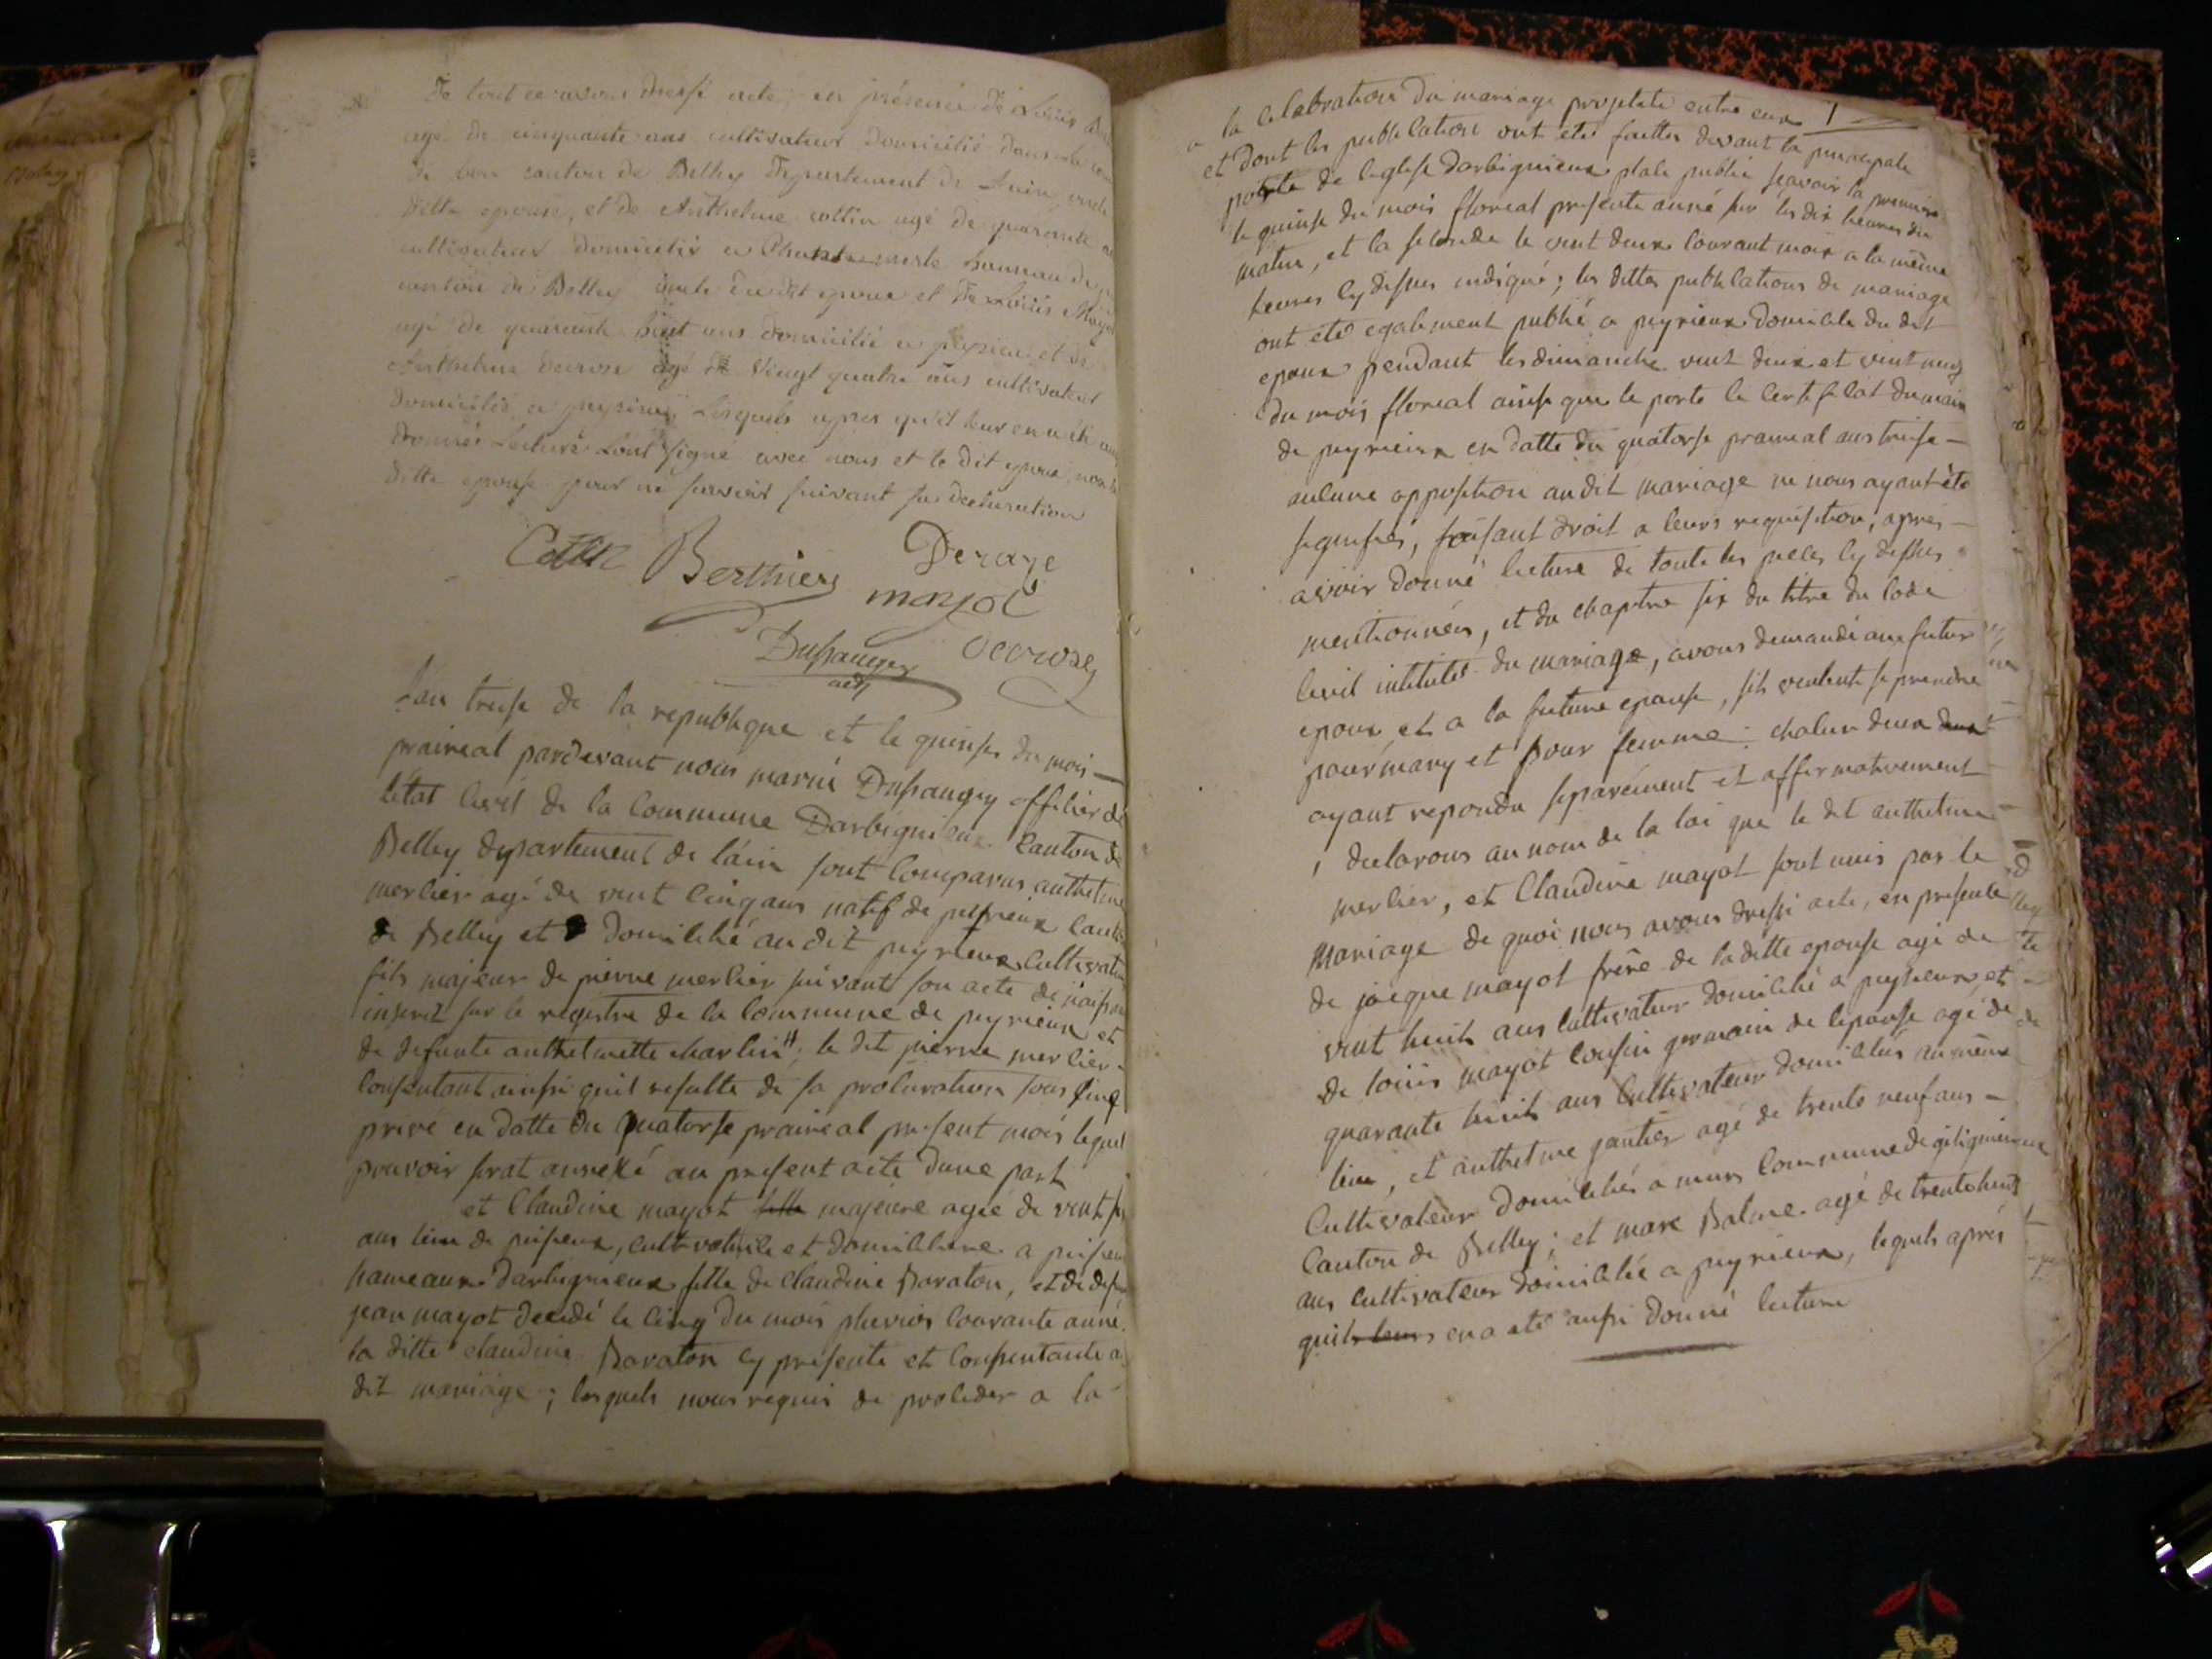 De tout ce avons dressé acte en présence de Louis
agé de cinquante ans cultivateur domicilié dans la
de bon canton de Belley Departement de Lain, oncle
ditte epouse, et de Anthelme cottin agé de quarante
cultivateur domicilié a hameau de
canton de Belley oncle du dit epoux et de Louis Mayot
agé de quarante huit ans domicilié a peyrieu et de
Anthelme decroze agé de vingt quatre ans cultivateur
domicilié a peyrieu Lesquels apres qu'il leur en a été aussi
donnée Lecture L'ont signé avec nous et le dit epoux, non la
ditte epouse pour ne sçavoir suivant sa declaration
Cottin Berthier Deraye
mayot
Dusaugey decroze
adj
Lan treise de la republique et le quinse du mois
praireal pardevant nous marin Dusaugey officier de
létat civil de la commune Darbignieux Canton de
Belley departement de láin sont comparus anthelme
merlier agé de vint cinq ans natif de peyrieux canton
de Belley et domicilié au dit peyrieux cultivateur
fils majeur de pierre merlier suivant son acte de naissan
inscrit sur le registre de la commune de peyrieux et
de defunte anthelmette charlin # le dit pierre merlier
consentant ainsi quil resulte de sa procuration sous sing
privé en datte du quatorse praireal present mois lequel
pouvoir serat annexé au present acte dune part
et Claudine mayot fille majeure agée de vint six
ans leiu de pusieux, cultivatrice et domiciliere a pusieux
hameaux darbignieux fille de claudine Baraton, et de defun
jean mayot decedé le cinq du mois pluvios courante anné
la ditte claudine Baraton cy presente et consentante a
dit mariage; lesquels nous requis de proceder a la
1
la celebration du mariage projetté entre eux
et dont les publication ont eté faittes devant la principale
porte de leglise darbignieux place public scavoir la premiere
le quinse du mois floreal presente anné sur les dix heures du
matin, et la seconde le vint deux courant mois a la même
heures cy dessus indiqué; les dittes publications de mariage
ont eté egalement publié a peyrieux domicile du dit
epoux pendant les dimanche vint deux et vint neuf
du mois floreal ainsi que le porte le certificat du maire
de peyrieux en datte du quatorse praireal ans treise
aucune opposition audit mariage ne nous ayant été
signifiés, faisant droit a leurs requisition, aprés
avoir donné lecture de toute les pieces cy dessus
mentionnées, et du chapitre six du titre du code
civil intitulé du mariage, avons demandé aux futur
epoux et a la future epouse, sils veulent se prendre
pour mary et pour femme: chacun deux deux
ayant repondu separément et affirmativement
declarons au nom de la loi que le dit anthelme
merlier, et Claudine mayot sont unis par le
mariage de quoi nous avons dressé acte, en presence
de jacque mayot frêre de la ditte epouse agé de
vint huit ans cultivateur domicilié a pusieux, et
de loüis mayot cousin germain de lepouse agé de
quarante huit ans cultivateur domiciliés au même
lieu, et anthelme gautier agé de trente neuf ans
Cultivateur domiciliés a murs commune de gélignieux
Canton de Belley; et marc Balme agé de trente huit
ans cultivateur domicilié a peyrieux, lequels aprés
quils leurs en a eté aussi donné lecture